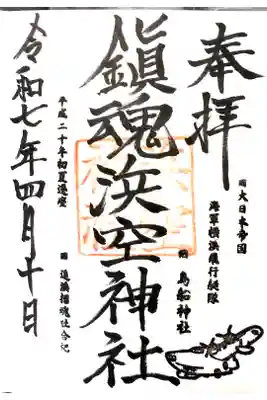 奉拝
旧大日本帝国
海軍横浜飛行艇隊
旧鳥船神社
鎮魂浜空神社
平成二十年初夏遷座
令和七年四月十日